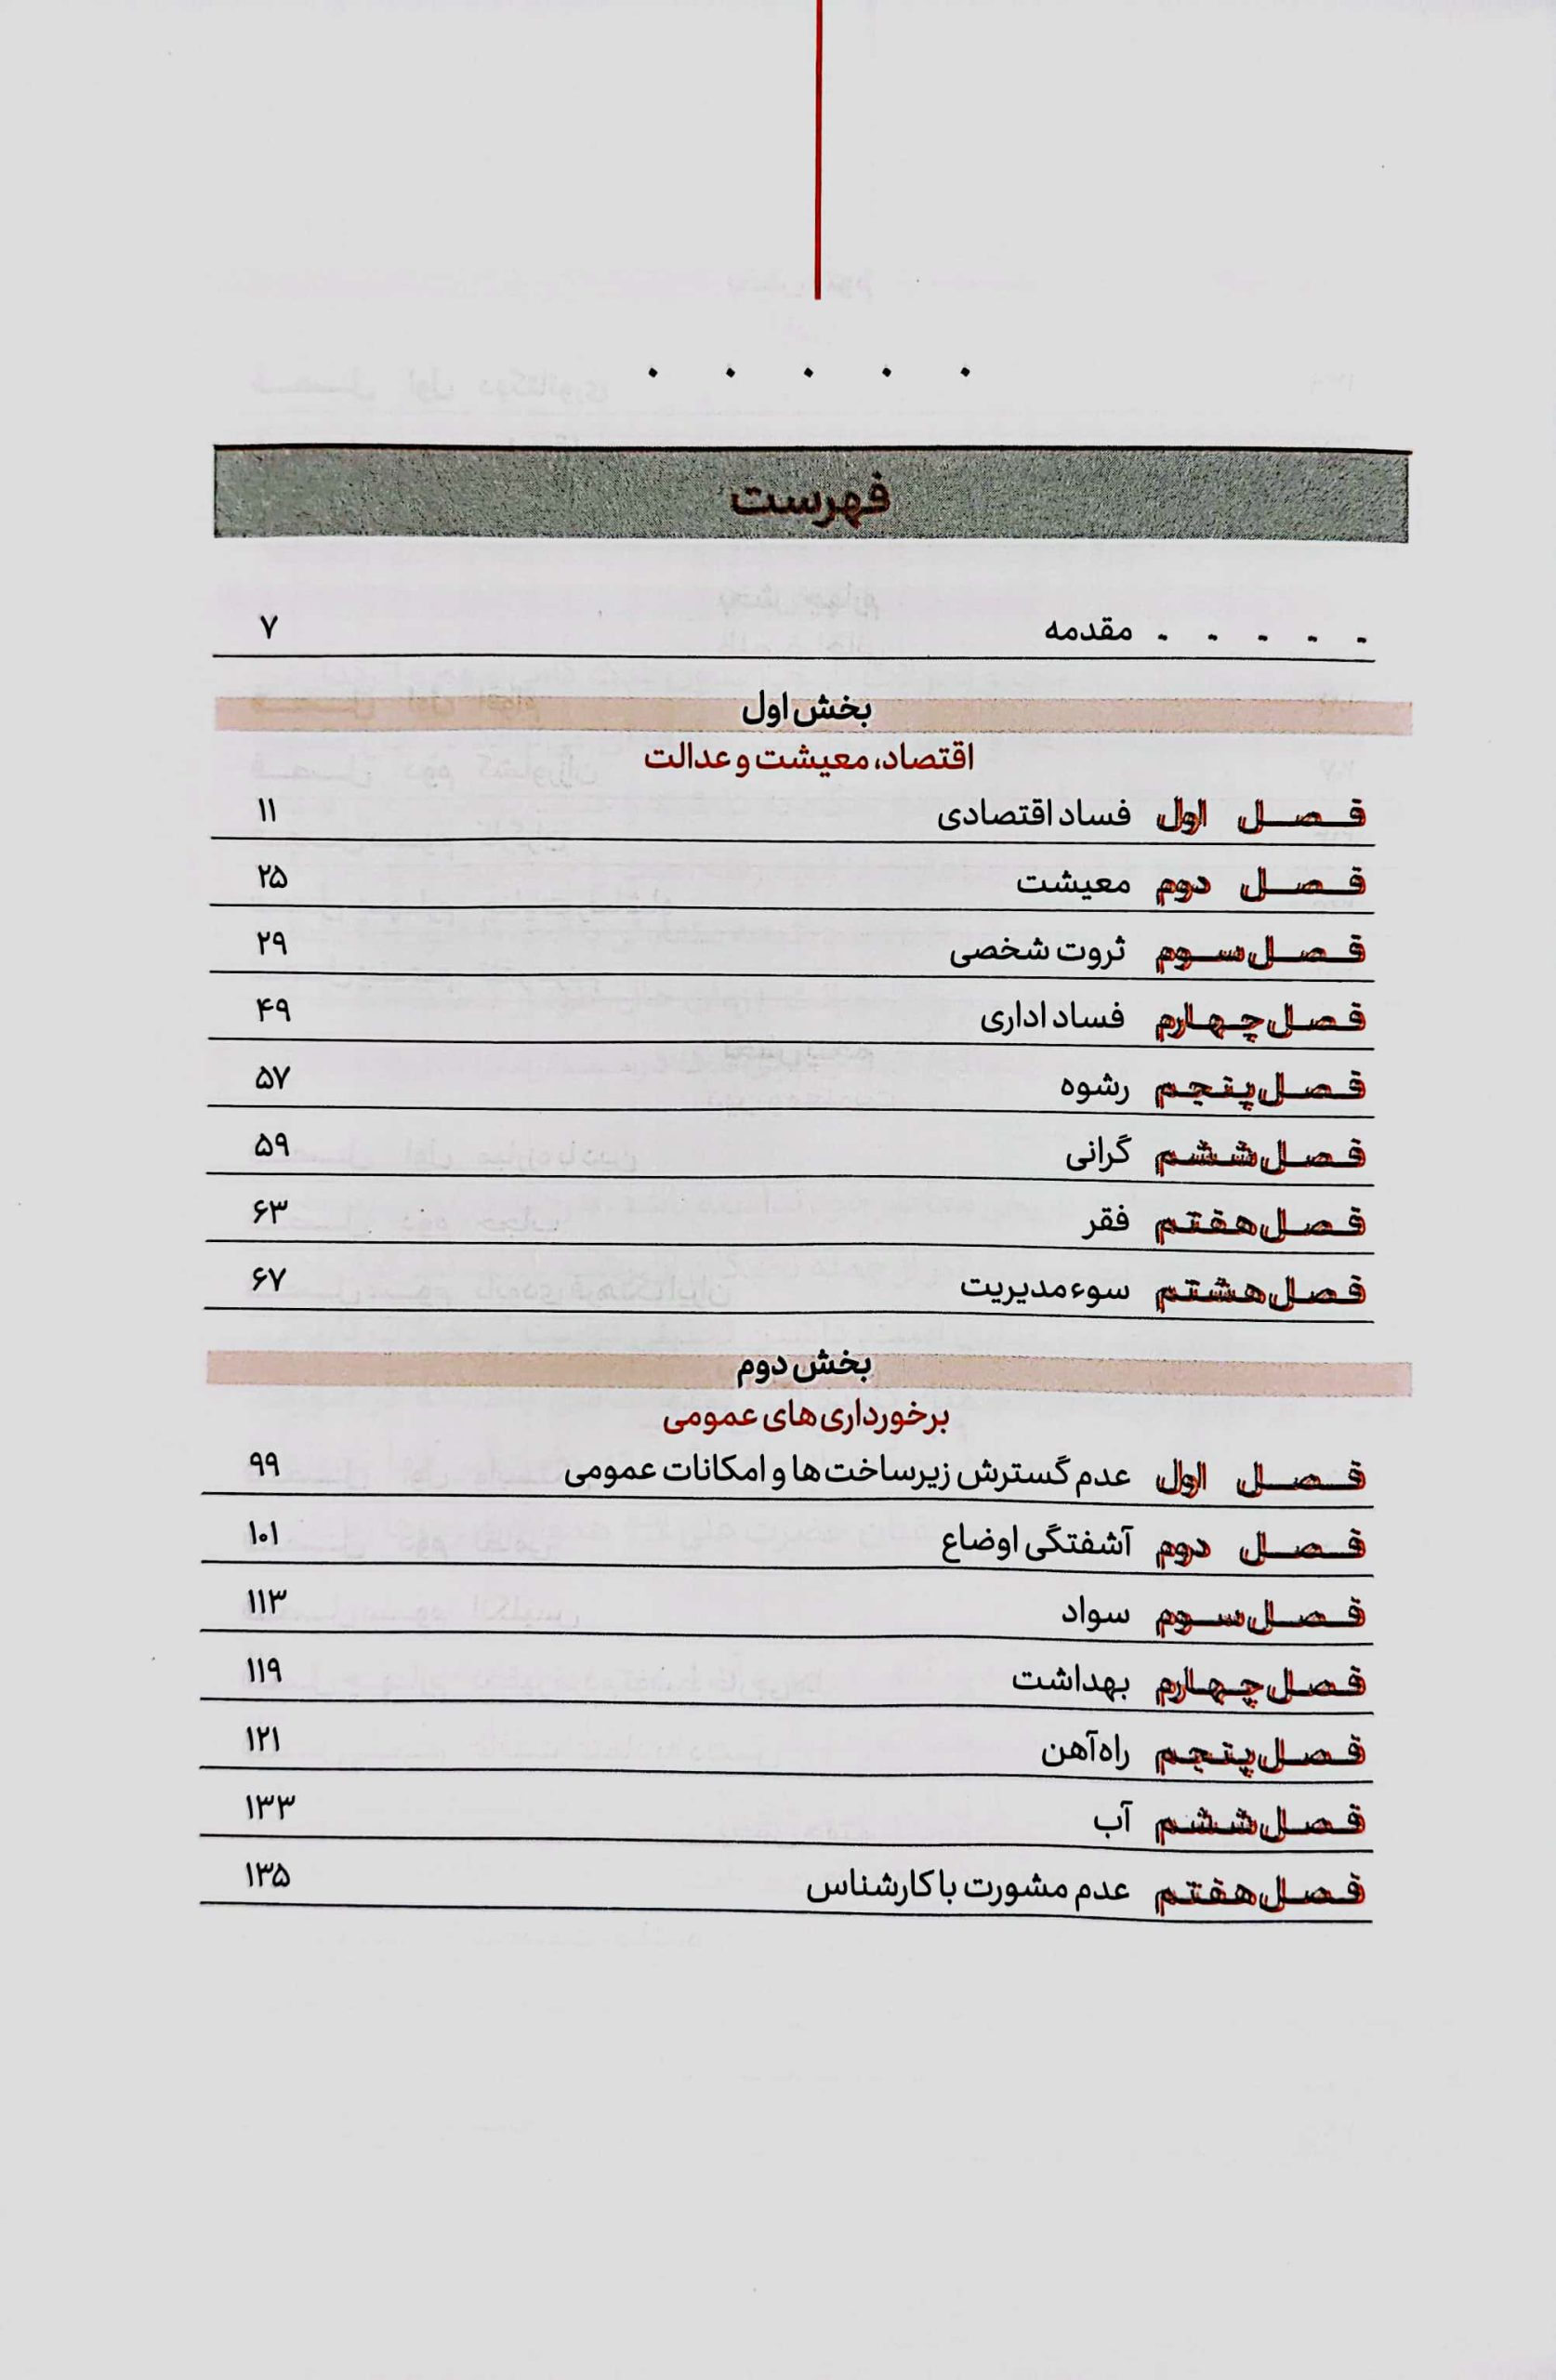 فهرست
مقدمه ۷
بخش اول
اقتصاد، معیشت و عدالت
فصل اول فساد اقتصادی ۱۱
فصل دوم معیشت ۲۵
فصل سوم ثروت شخصی ۲۹
فصل چهارم فساد اداری ۴۹
فصل پنجم رشوه ۵۷
فصل ششم گرانی ۵۹
فصل هفتم فقر ۶۳
فصل هشتم سوءمدیریت ۶۷
بخش دوم
برخورداری‌های عمومی
فصل اول عدم گسترش زیرساخت‌ها و امکانات عمومی ۹۹
فصل دوم آشفتگی اوضاع ۱۰۱
فصل سوم سواد ۱۱۳
فصل چهارم بهداشت ۱۱۹
فصل پنجم راه‌آهن ۱۲۱
فصل ششم آب ۱۳۳
فصل هفتم عدم مشورت با کارشناس ۱۳۵